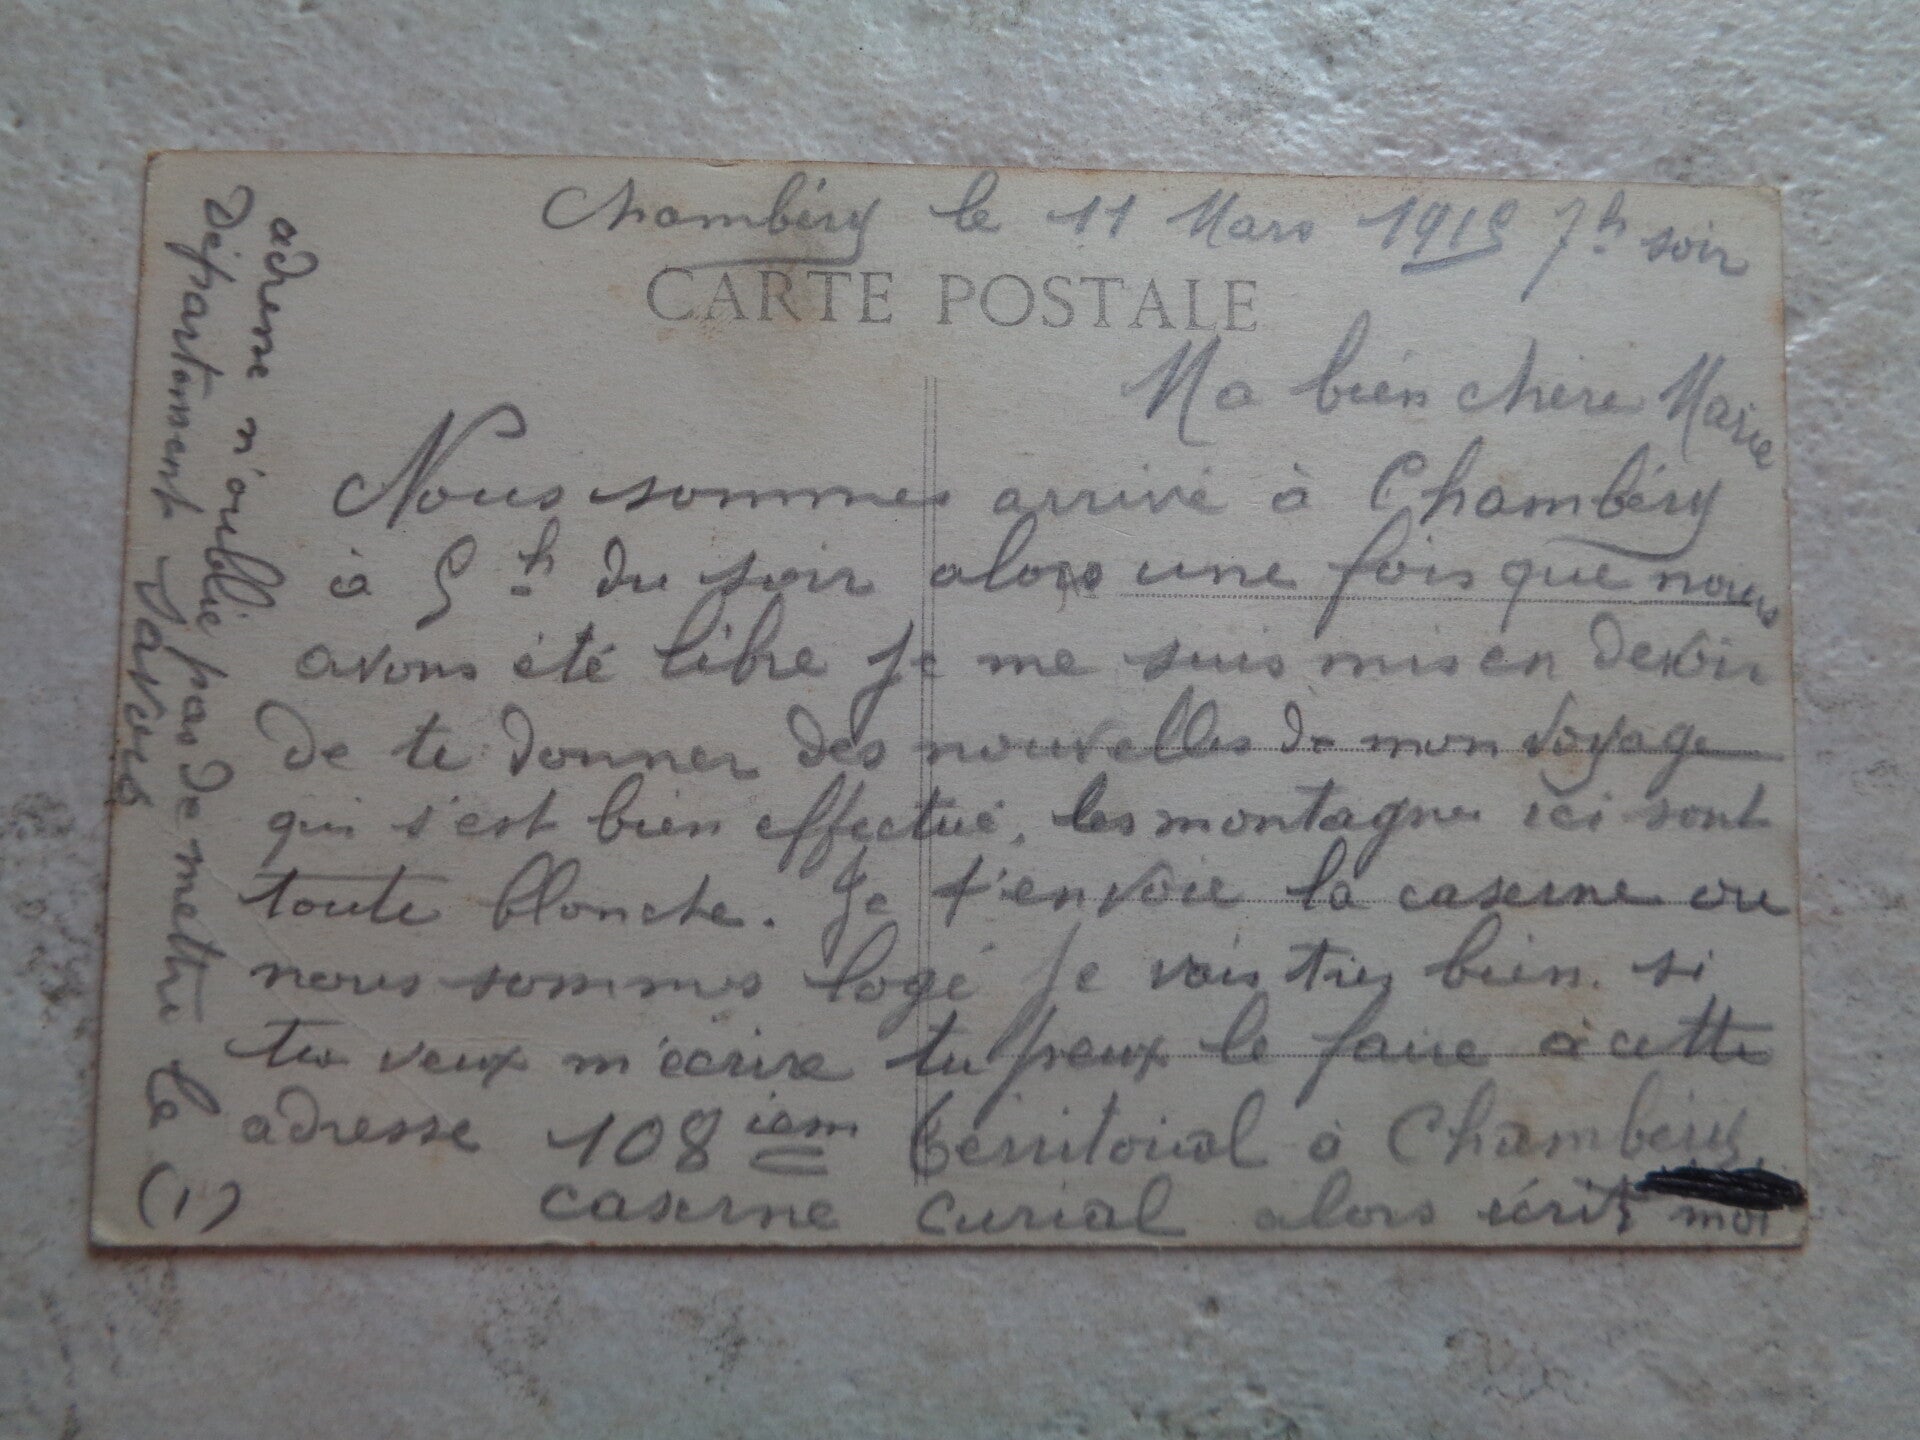 Chambéry le 11 Mars 1915 7h soir
CARTE POSTALE
Ma bien chère Marie
Nous sommes arrivé à Chambéry
à 5h du soir alors une fois que nous
avons été libre je me suis mis en devoir
de te donner des nouvelles de mon voyage
qui s'est bien effectué. les montagnes ici sont
toute blanche. Je t'envoie la caserne ou
nous sommes logé je vais très bien. si
tu veux m'écrire tu peux le faire à cette
adresse 108iem territoirial à Chambéry
caserne Curial alors écrit moi
adresse n'oublie pas de mettre le (1)
Département Savoie